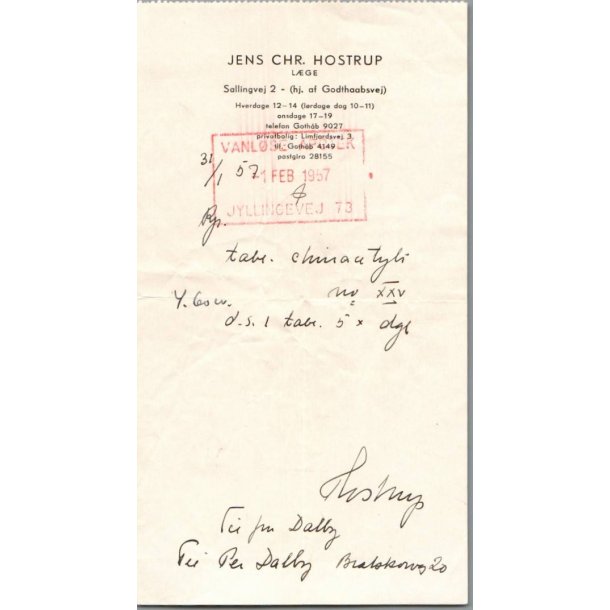 JENS CHR. HOSTRUP
LÆGE
Sallingvej 2 - (hj. af Godthaabsvej)
Hverdage 12-14 (lørdage dog 10-11)
onsdage 17-19
telefon Gothåb 9027
privatbolig: Limfjordsvej 3
tlf. Gothåb 4149
postgiro 28155
VANLØSE
31/1 57
-1 FEB 1957
JYLLINGEVEJ 73
Rp.
tabl. chinacetyli
no XXV
d.s. 1 tabl. 5 x dgl
Hostrup
Til fru Dalby
Til Per Dalby
20